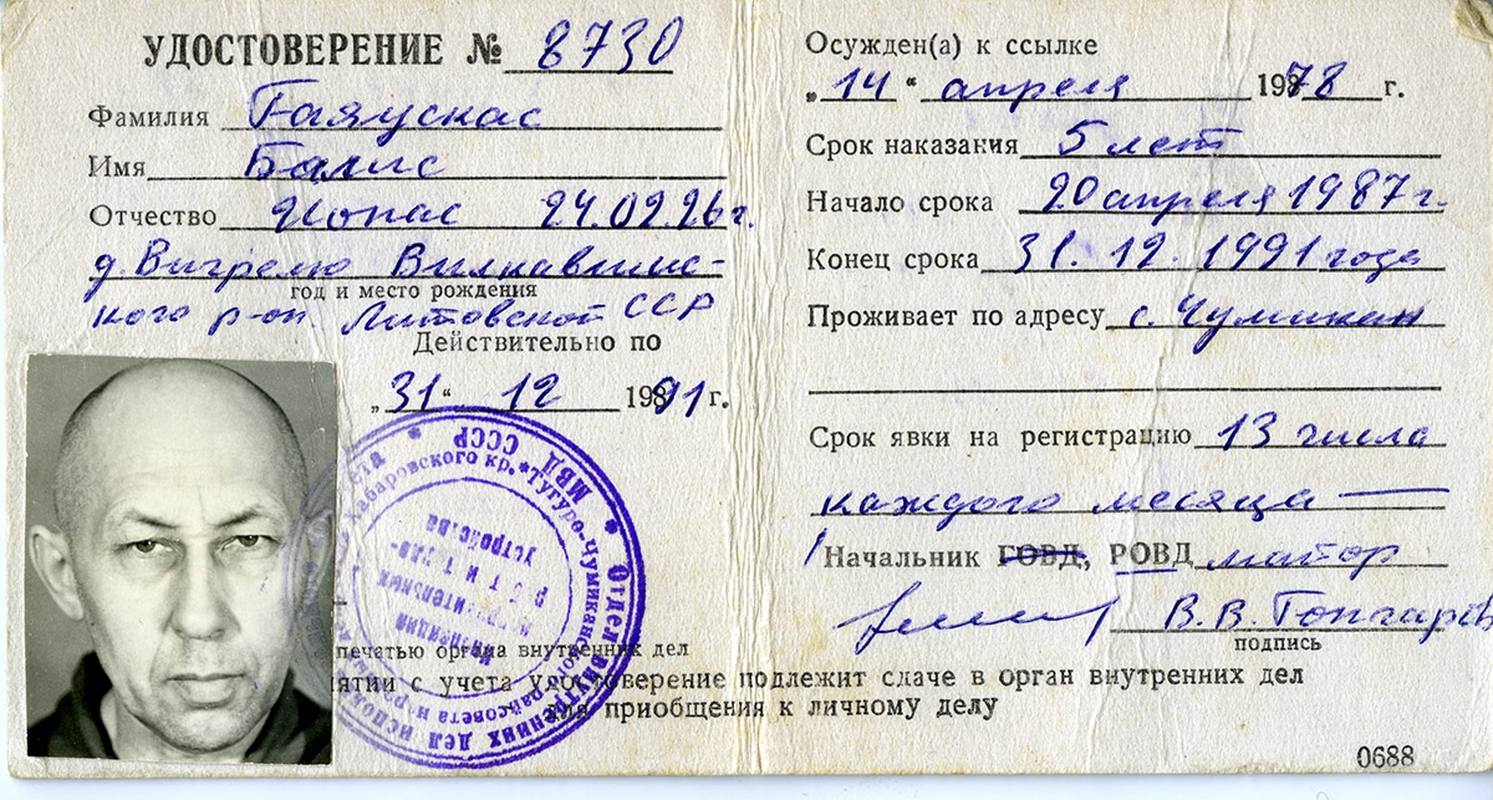 УДОСТОВЕРЕНИЕ № 8730
Фамилия Гаяускас
Имя Балис
Отчество Йонас 24.02.26 г.
д. Вигрелю Вилкавишс-
год и место рождения
кого р-он. Литовской ССР
Действительно по
„31“ 12 1991 г.
печатью органа внутренних дел
ятии с учета удостоверение подлежит сдаче в орган внутренних дел
для приобщения к личному делу
Осужден(а) к ссылке
„14“ апреля 1978 г.
Срок наказания 5 лет
Начало срока 20 апреля 1987 г.
Конец срока 31. 12. 1991 года
Проживает по адресу с. Чумикан
Срок явки на регистрацию 13 числа
каждого месяца —
Начальник ГОВД, РОВД майор
В. В. Гончаров
подпись
0688
* МВД СССР * Отдел внутренних дел
Хабаровского кр. * Тугуро-Чумиканского райсовета
Инспекция
исправительных
работ и трудо-
устройства